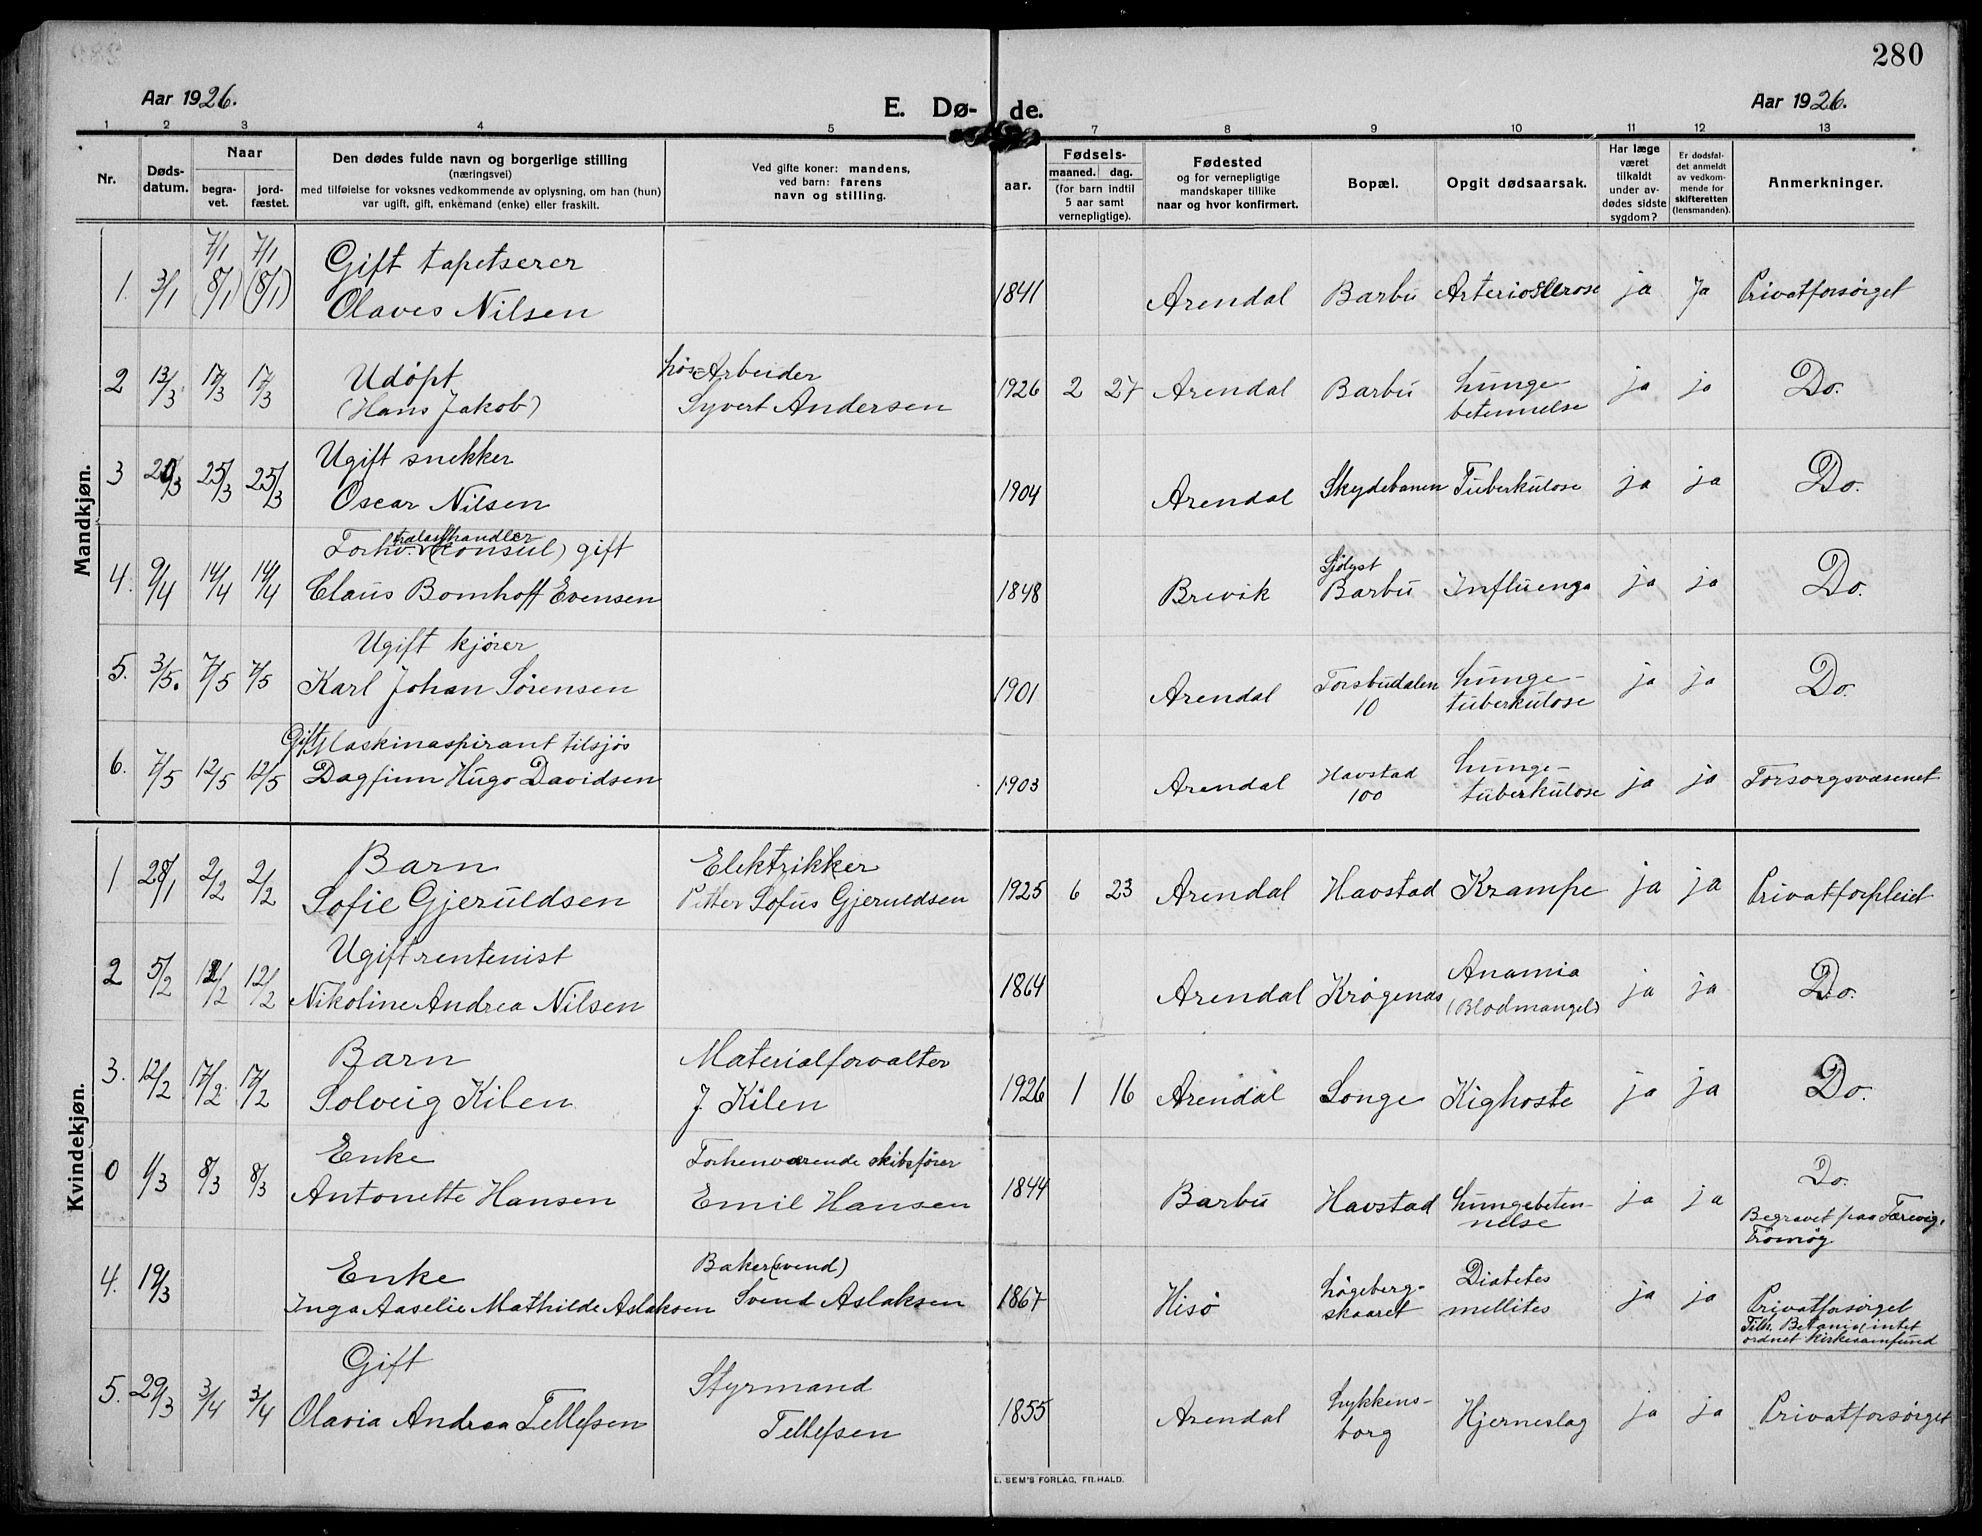 280
Aar 1926.
E. Dø- de.
Aar 1926.
1 2 3 4 5 7 8 9 10 11 12 13
Nr. Dødsdatum. Naar begravet. jordfæstet.
Den dødes fulde navn og borgerlige stilling
(næringsvei)
med tilføielse for voksnes vedkommende av oplysning, om han (hun)
var ugift, gift, enkemand (enke) eller fraskilt.
Ved gifte koner: mandens,
ved barn: farens
navn og stilling.
Fødsels-
aar. maaned. dag.
(for barn indtil
5 aar samt
vernepligtige).
Fødested
og for vernepligtige
mandskaper tillike
naar og hvor konfirmert.
Bopæl.
Opgit dødsaarsak.
Har læge
været
tilkaldt
under av-
dødes sidste
sygdom?
Er dødsfal-
det anmeldt
av vedkom-
mende for
skifteretten
(lensmanden).
Anmerkninger.
Mandkjøn.
7/1 7/1 Gift tapetserer
1. 3/1 (8/1) (8/1) Olaves Nilsen 1841 Arendal Barbu Arteriosclerose ja Ja Privatforsørget
2 13/3 17/3 17/3 Udøpt Arbeider
(Hans Jakob) Syvert Andersen 1926 2 27 Arendal Barbu Lunge-
betennelse ja ja Do.
3 20/3 25/3 25/3 Ugift snekker
Oscar Nilsen 1904 Arendal Skydebanen Tuberkulose ja ja Do.
Forhv. (Konsul) gift
4. 9/4 14/4 14/4 Claus Bomhoff Evensen 1848 Brevik Sjølyst
Barbu Influenga ja ja Do.
5. 3/5. 7/5 7/5 Ugift kjører
Karl Johan Sørensen 1901 Arendal Torsbudalen
10 Lunge-
tuberkulose ja ja Do.
Gift Maskinaspirant tilsjøs
6. 7/5 12/5 12/5 Dagfinn Hugo Davidsen 1903 Arendal Havstad
100 Lunge-
tuberkulose ja ja Forsorgsvæsenet
Kvindekjøn.
1 28/1 2/2 2/2 Barn Elektrikker
Sofie Gjeruldsen Petter Sofus Gjeruldsen 1925 6 23 Arendal Havstad Krampe ja ja Privatforpleiet
2 5/2 12/2 12/2 Ugift rentenist
Nikoline Andrea Nilsen 1864 Arendal Krøgenas Anamia
(Blodmangel) ja ja Do.
3. 12/2 17/2. 17/2 Barn Materialforvalter
Solveig Kilen J Kilen 1926 1 16 Arendal Longe Kighoste ja ja Do.
0 1/3 8/3 8/3 Enke Forhenværende skibsfører
Antonette Hansen Emil Hansen 1844 Barbu Havstad Lungebeten-
nelse ja ja Do.
Begravet paa Færvig,
Tromøy
4. 19/3 Enke Baker(svend)
Inga Aaselie Mathilde Aslaksen Svend Aslaksen 1867 Hisø Løgeberg-
skaaret Diatetes
mellites ja ja Privatforsørget
Tilh. Betania, intet
ordnet kirkesamfund
5. 29/3 3/4 3/4 Gift Styrmand
Olavia Andrea Tellefsen Tellefsen 1855 Arendal Lykkens-
borg Hjerneslag ja ja Privatforsørget
E. SEM'S FORLAG, FR.HALD.